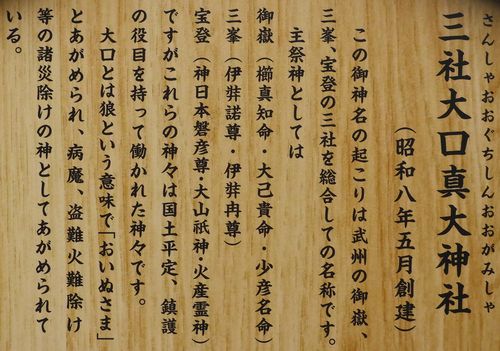 さんしゃおおぐちしんおおがみしゃ
三社大口真大神社
（昭和八年五月創建）
この御神名の起こりは武州の御嶽、
三峯、宝登の三社を総合しての名称です。
主祭神としては
御嶽（櫛真知命・大己貴命・少彦名命）
三峯（伊弉諾尊・伊弉冉尊）
宝登（神日本磐彦尊・大山祇神・火産霊神）
ですがこれらの神々は国土平定、鎮護
の役目を持って働かれた神々です。
大口とは狼という意味で「おいぬさま」
とあがめられ、病魔、盗難火難除け
等の諸災除けの神としてあがめられて
いる。